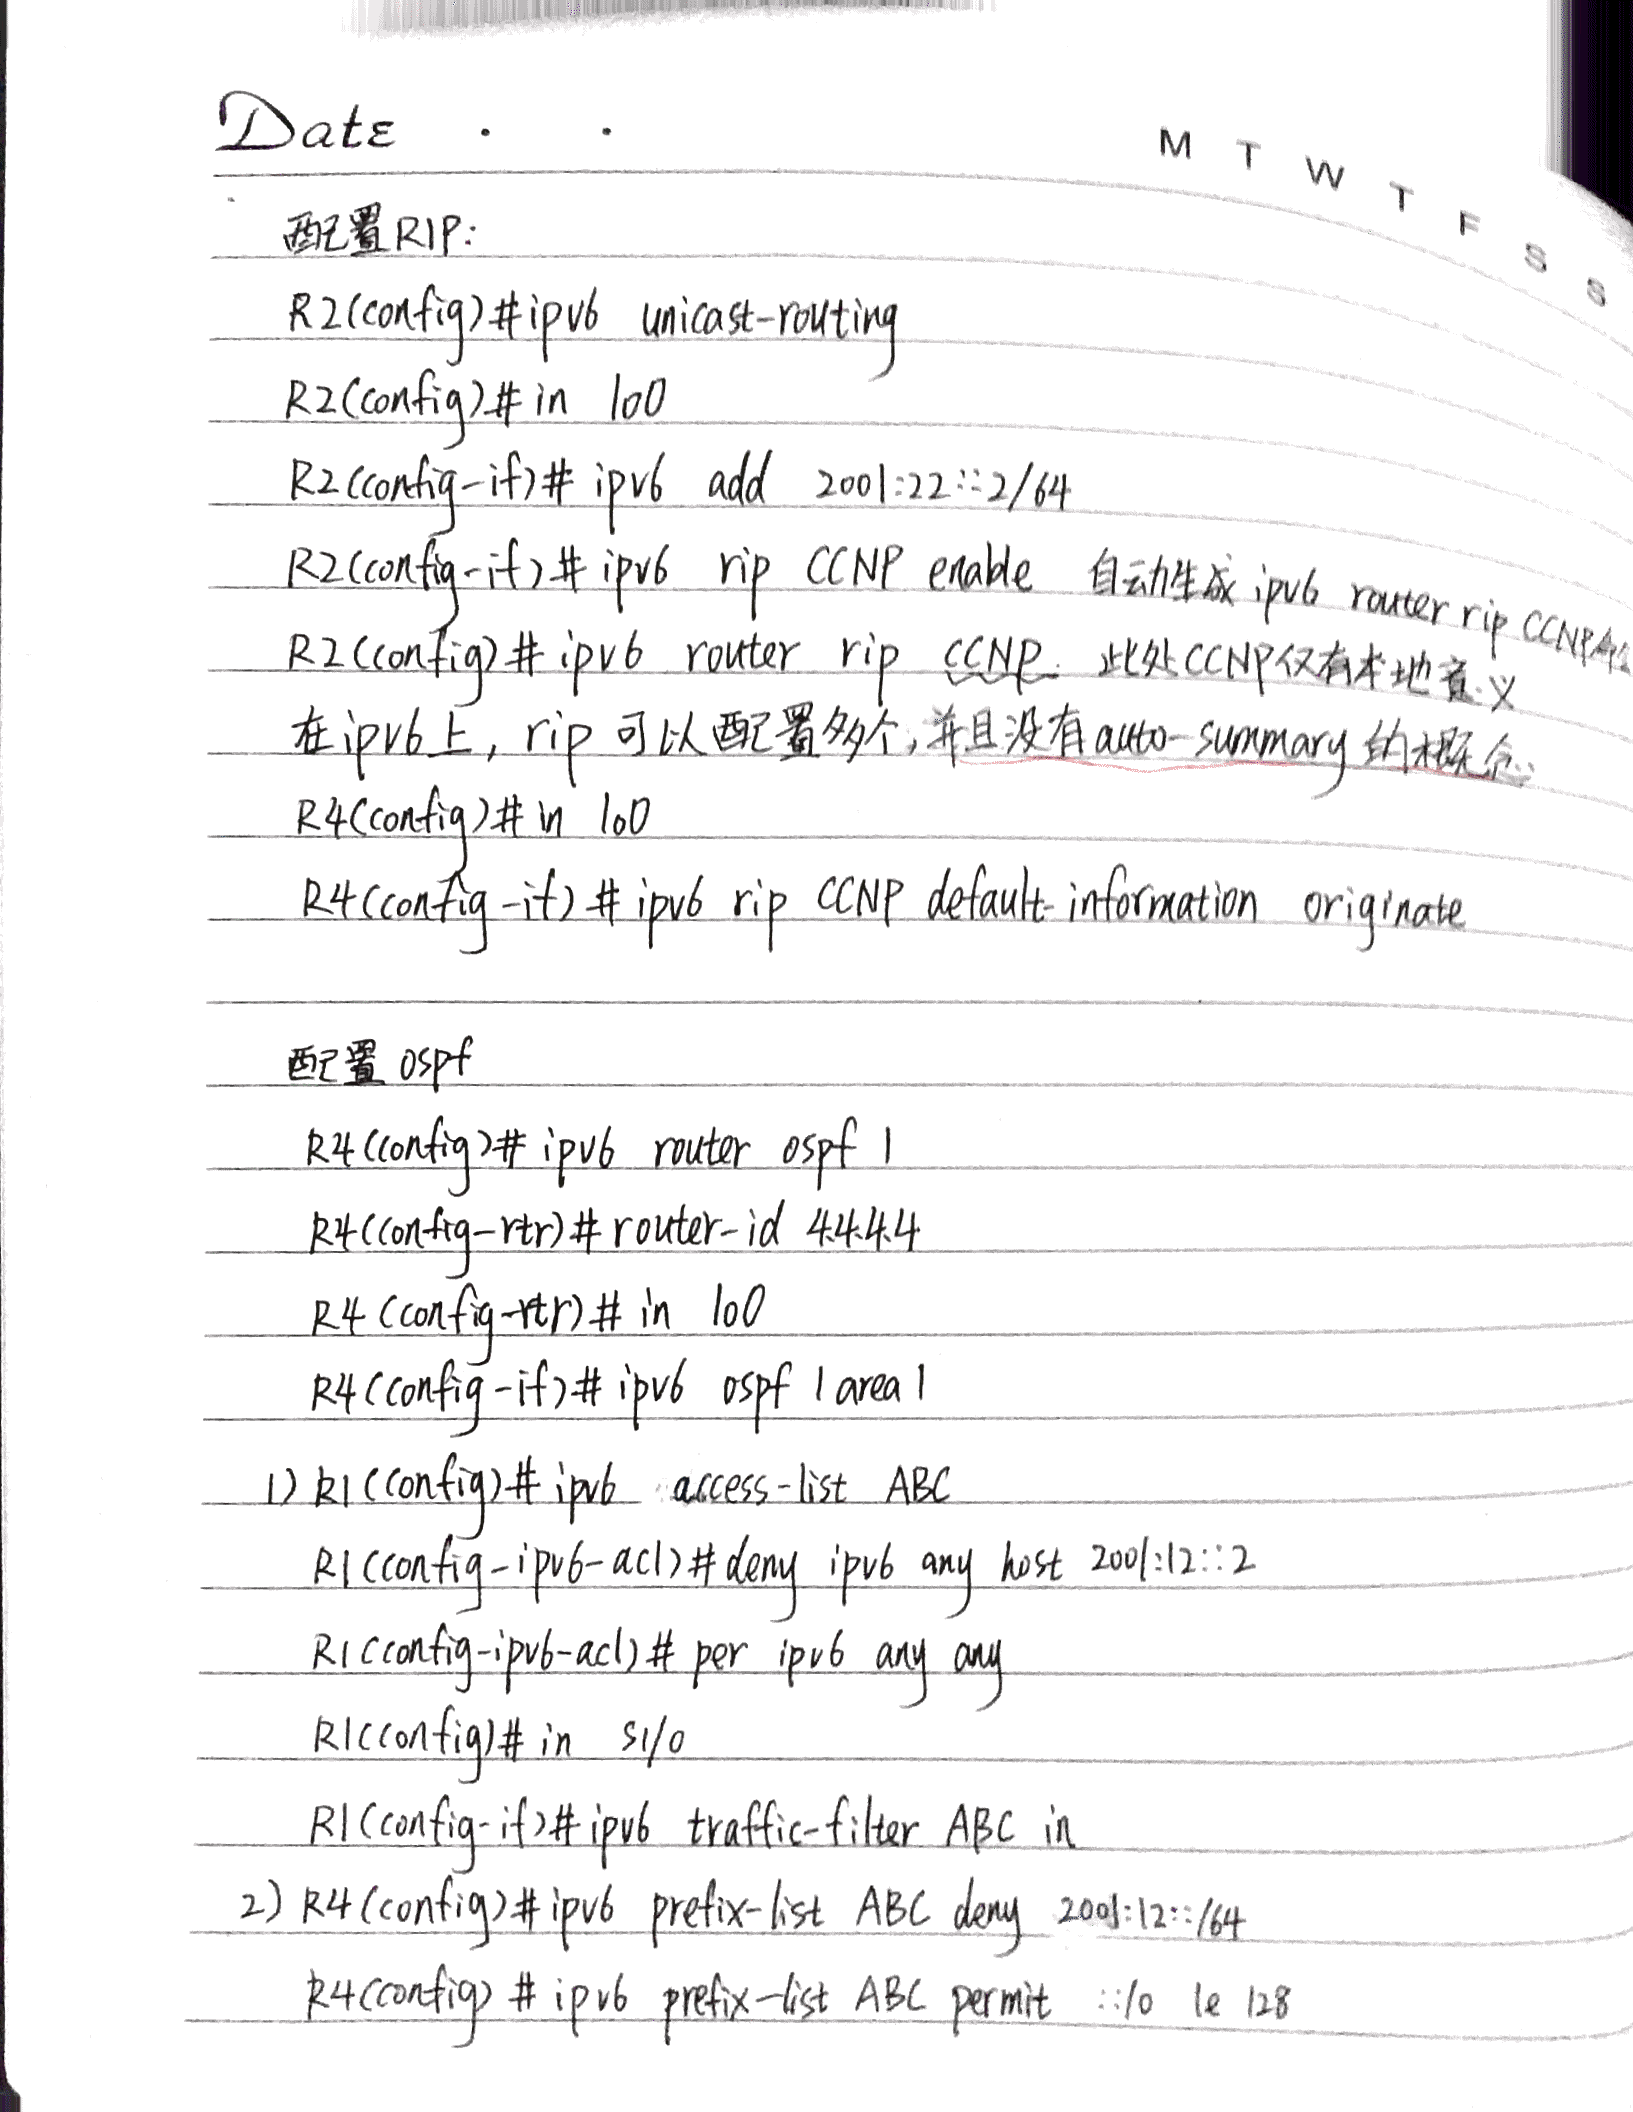 Date . .
M T W T F S S
配置RIP:
R2(config)#ipv6 unicast-routing
R2(config)#in lo0
R2(config-if)# ipv6 add 2001:22::2/64
R2(config-if)# ipv6 rip CCNP enable 自动生成 ipv6 router rip CCNP
R2(config)# ipv6 router rip CCNP. 此处CCNP仅有本地意义
在ipv6上, rip可以配置多个,并且没有auto-summary的概念.
R4(config)#in lo0
R4(config-if)#ipv6 rip CCNP default-information originate
配置 ospf
R4(config)# ipv6 router ospf 1
R4(config-rtr)# router-id 4.4.4.4
R4(config-rtr)# in lo0
R4(config-if)# ipv6 ospf 1 area 1
1) R1(config)# ipv6 access-list ABC
R1(config-ipv6-acl)#deny ipv6 any host 2001:12::2
R1(config-ipv6-acl)# per ipv6 any any
R1(config)# in s1/0
R1(config-if)# ipv6 traffic-filter ABC in
2) R4(config)#ipv6 prefix-list ABC deny 2001:12::/64
R4(config)# ipv6 prefix-list ABC permit ::/0 le 128